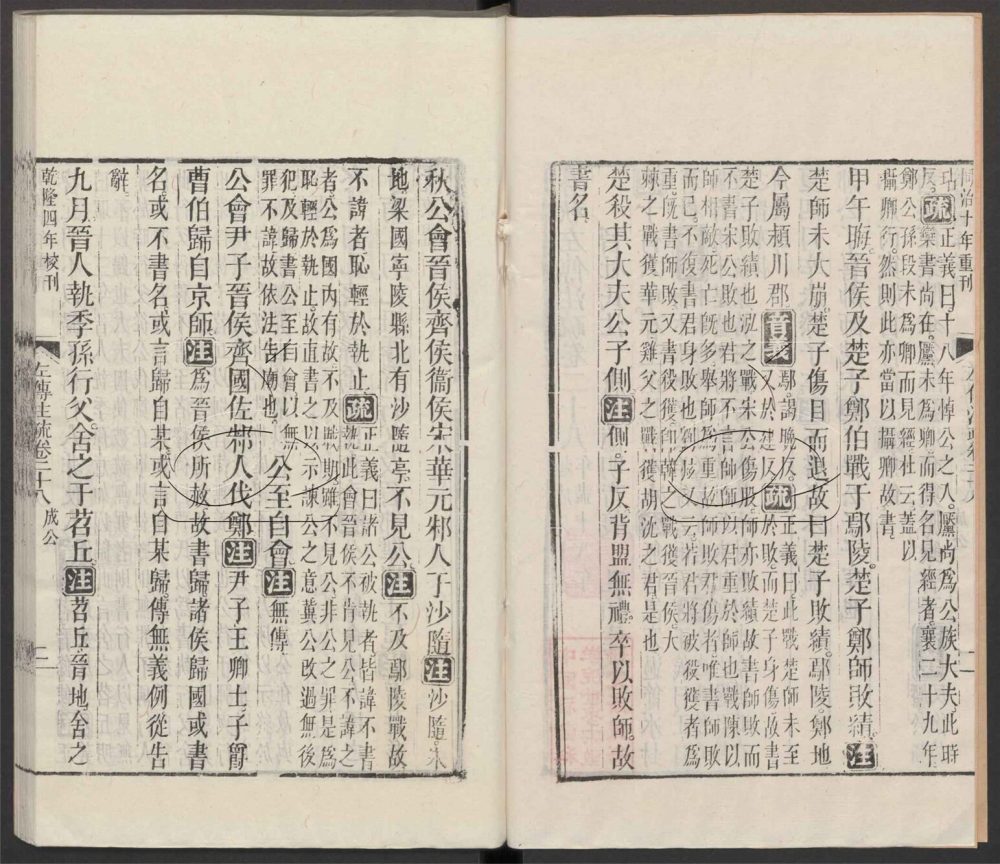 同治十年重刊
玷疏正義曰十八年悼公之入黶尚爲公族大夫此時
欒書尚在黶未爲卿而得名見經者襄二十九年
鄭公孫段未爲卿而見經杜云蓋以
攝卿行然則此亦當以攝卿故書
甲午晦晉侯及楚子鄭伯戰于鄢陵楚子鄭師敗績注
楚師未大崩楚子傷目而退故曰楚子敗績鄢陵鄭地
今屬潁川郡音義鄢謁晩反又於建反疏正義曰此戰楚師未至
於敗而楚子身傷故書
楚子敗績也泓之戰宋公傷敗師亦敗績故書師敗而
不書宋公敗也君將不言師師以君重於師也戰陳以
師相敵死亡旣多舉師爲重故師敗君傷者唯書師敗
而已不復書君身敗也
重旣書師敗又書獲
棘之戰獲華元雞父之戰獲胡沈之君是也
楚殺其大夫公子側注側子反背盟無禮卒以敗師故
書名
秋公會晉侯齊侯衞侯宋華元邾人于沙隨注沙隨宋
地梁國寧陵縣北有沙隨亭不見公注不及鄢陵戰故
不諱者恥輕於執止疏正義曰諸公被執者皆諱不書
執此會晉侯不肯見公不諱之
者公爲國內有故不及戰期雖不見公非公之罪是爲
恥輕於執止故直書之以示諫公之意冀公改過無後
犯及歸書公至自會以無
罪不諱故依法告廟也
公至自會注無傳
公會尹子晉侯齊國佐邾人伐鄭注尹子王卿士子爵
曹伯歸自京師注爲晉侯所赦故書歸諸侯歸國或書
名或不書名或言歸自某或言自某歸傳無義例從告
辭
九月晉人執季孫行父舍之于苕丘注苕丘晉地舍之
乾隆四年校刊
左傳注疏卷二十八成公
二